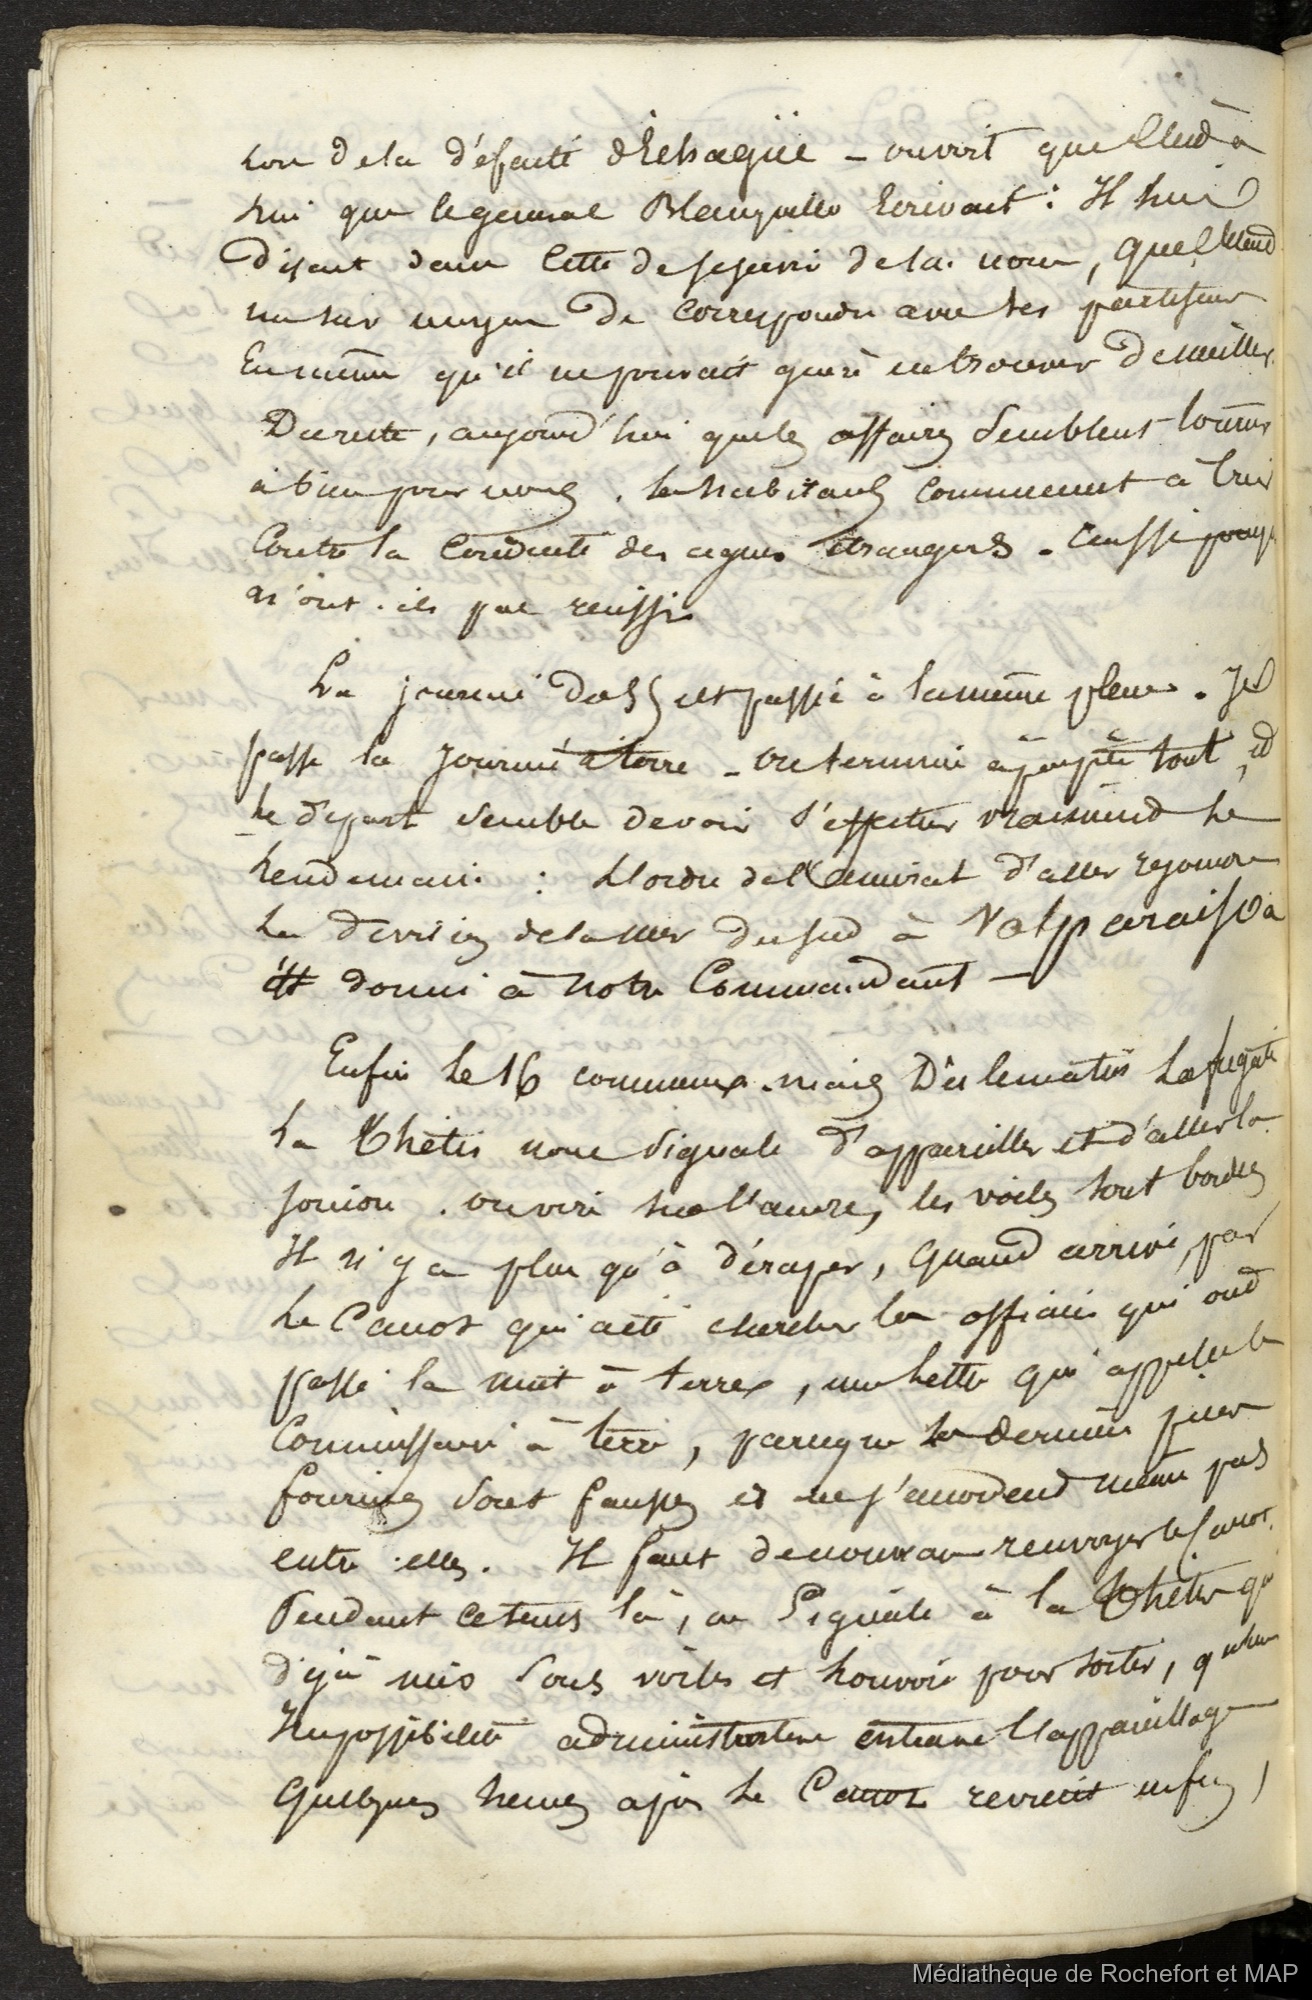 lors de la défaite d'Echagüe - on vit que c'était à
lui que le général écrivait : Il lui
disait dans cette de se servir de la, quel
un sur moyen de correspondre avec ses partisans
qu'il ne pouvait guère en trouver de meilleur
Du reste, aujourd'hui que les affaires semblent tourner
à bien pour nous, les habitants commencent à crier
contre la conduite des agens étrangers. aussi
n'ont-ils pas réussi
La journée du 15 est passée à la même place. Je
passe la journée à terre - on termine à peu près tout, et
le départ semble devoir s'effectuer vraiment le
lendemain : L'ordre de l'amiral d'aller rejoindre
la division de la mer du sud à Valparaiso a
été donné à notre Commandant —
Enfin le 16 commence. mais Dès le matin La frégate
la Thétis nous signale d'appareiller et d'aller la
joindre. on vire sur l'ancre, les voiles sont bordées
Il n'y a plus qu'à déraper, quand arrive, par
le Canot qui a été chercher les officiers qui ont
passé la nuit à terre, une lettre qui appelle le
Commissaire à terre, parceque les dernières pièces
fournies sont fausses et ne s'accordent même pas
entre elles. Il faut de nouveau renvoyer le canot.
Pendant ce tems là, on signale à la Thétis qui
déjà mis sous voiles et louvoie pour sortir, qu'une
Impossibilité administrative entrave l'appareillage
Quelques heures après le Canot revient enfin,
Médiathèque de Rochefort et MAP